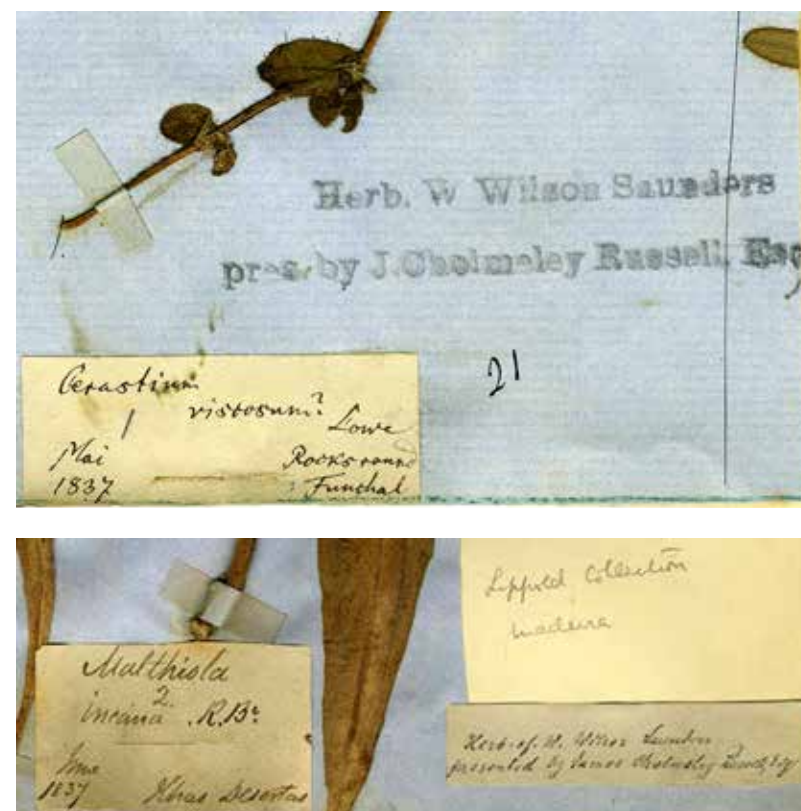 Herb. W Wilson Saunders
pres. by J. Cholmeley Russell, Esq
21
Cerastium
viscosum? Lowe
Mai Rocks round
1837 Funchal
Lippold Collection
Madeira
Matthiola
2.
incana. R. Br.
June
1837 Ilhas Desertas
Herb. of W. Wilson Saunders
presented by James Cholmeley